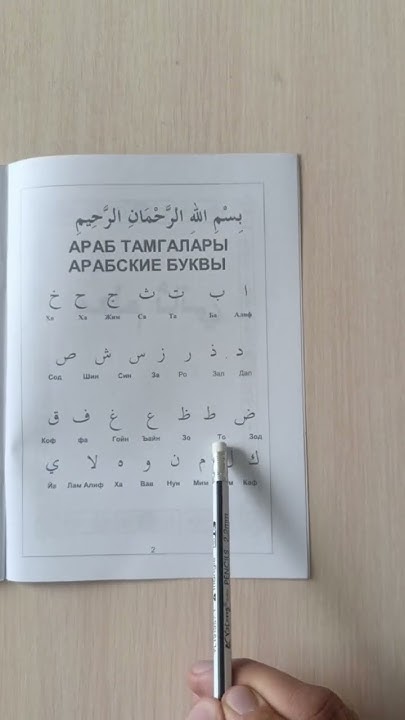 بِسْمِ اللهِ الرَّحْمَانِ الرَّحِيمِ
АРАБ ТАМГАЛАРЫ
АРАБСКИЕ БУКВЫ
ا ب ت ث ج ح خ
Ха Ха Жим Са Та Ба Алиф
د ذ ر ز س ش ص
Сод Шин Син За Ро Зал Дал
ض ط ظ ع غ ف ق
Коф фа Гойн Ъайн Зо То Зод
ك ل م ن و ه لا ي
Йа Лам Алиф Ха Вав Нун Мим Каф
2